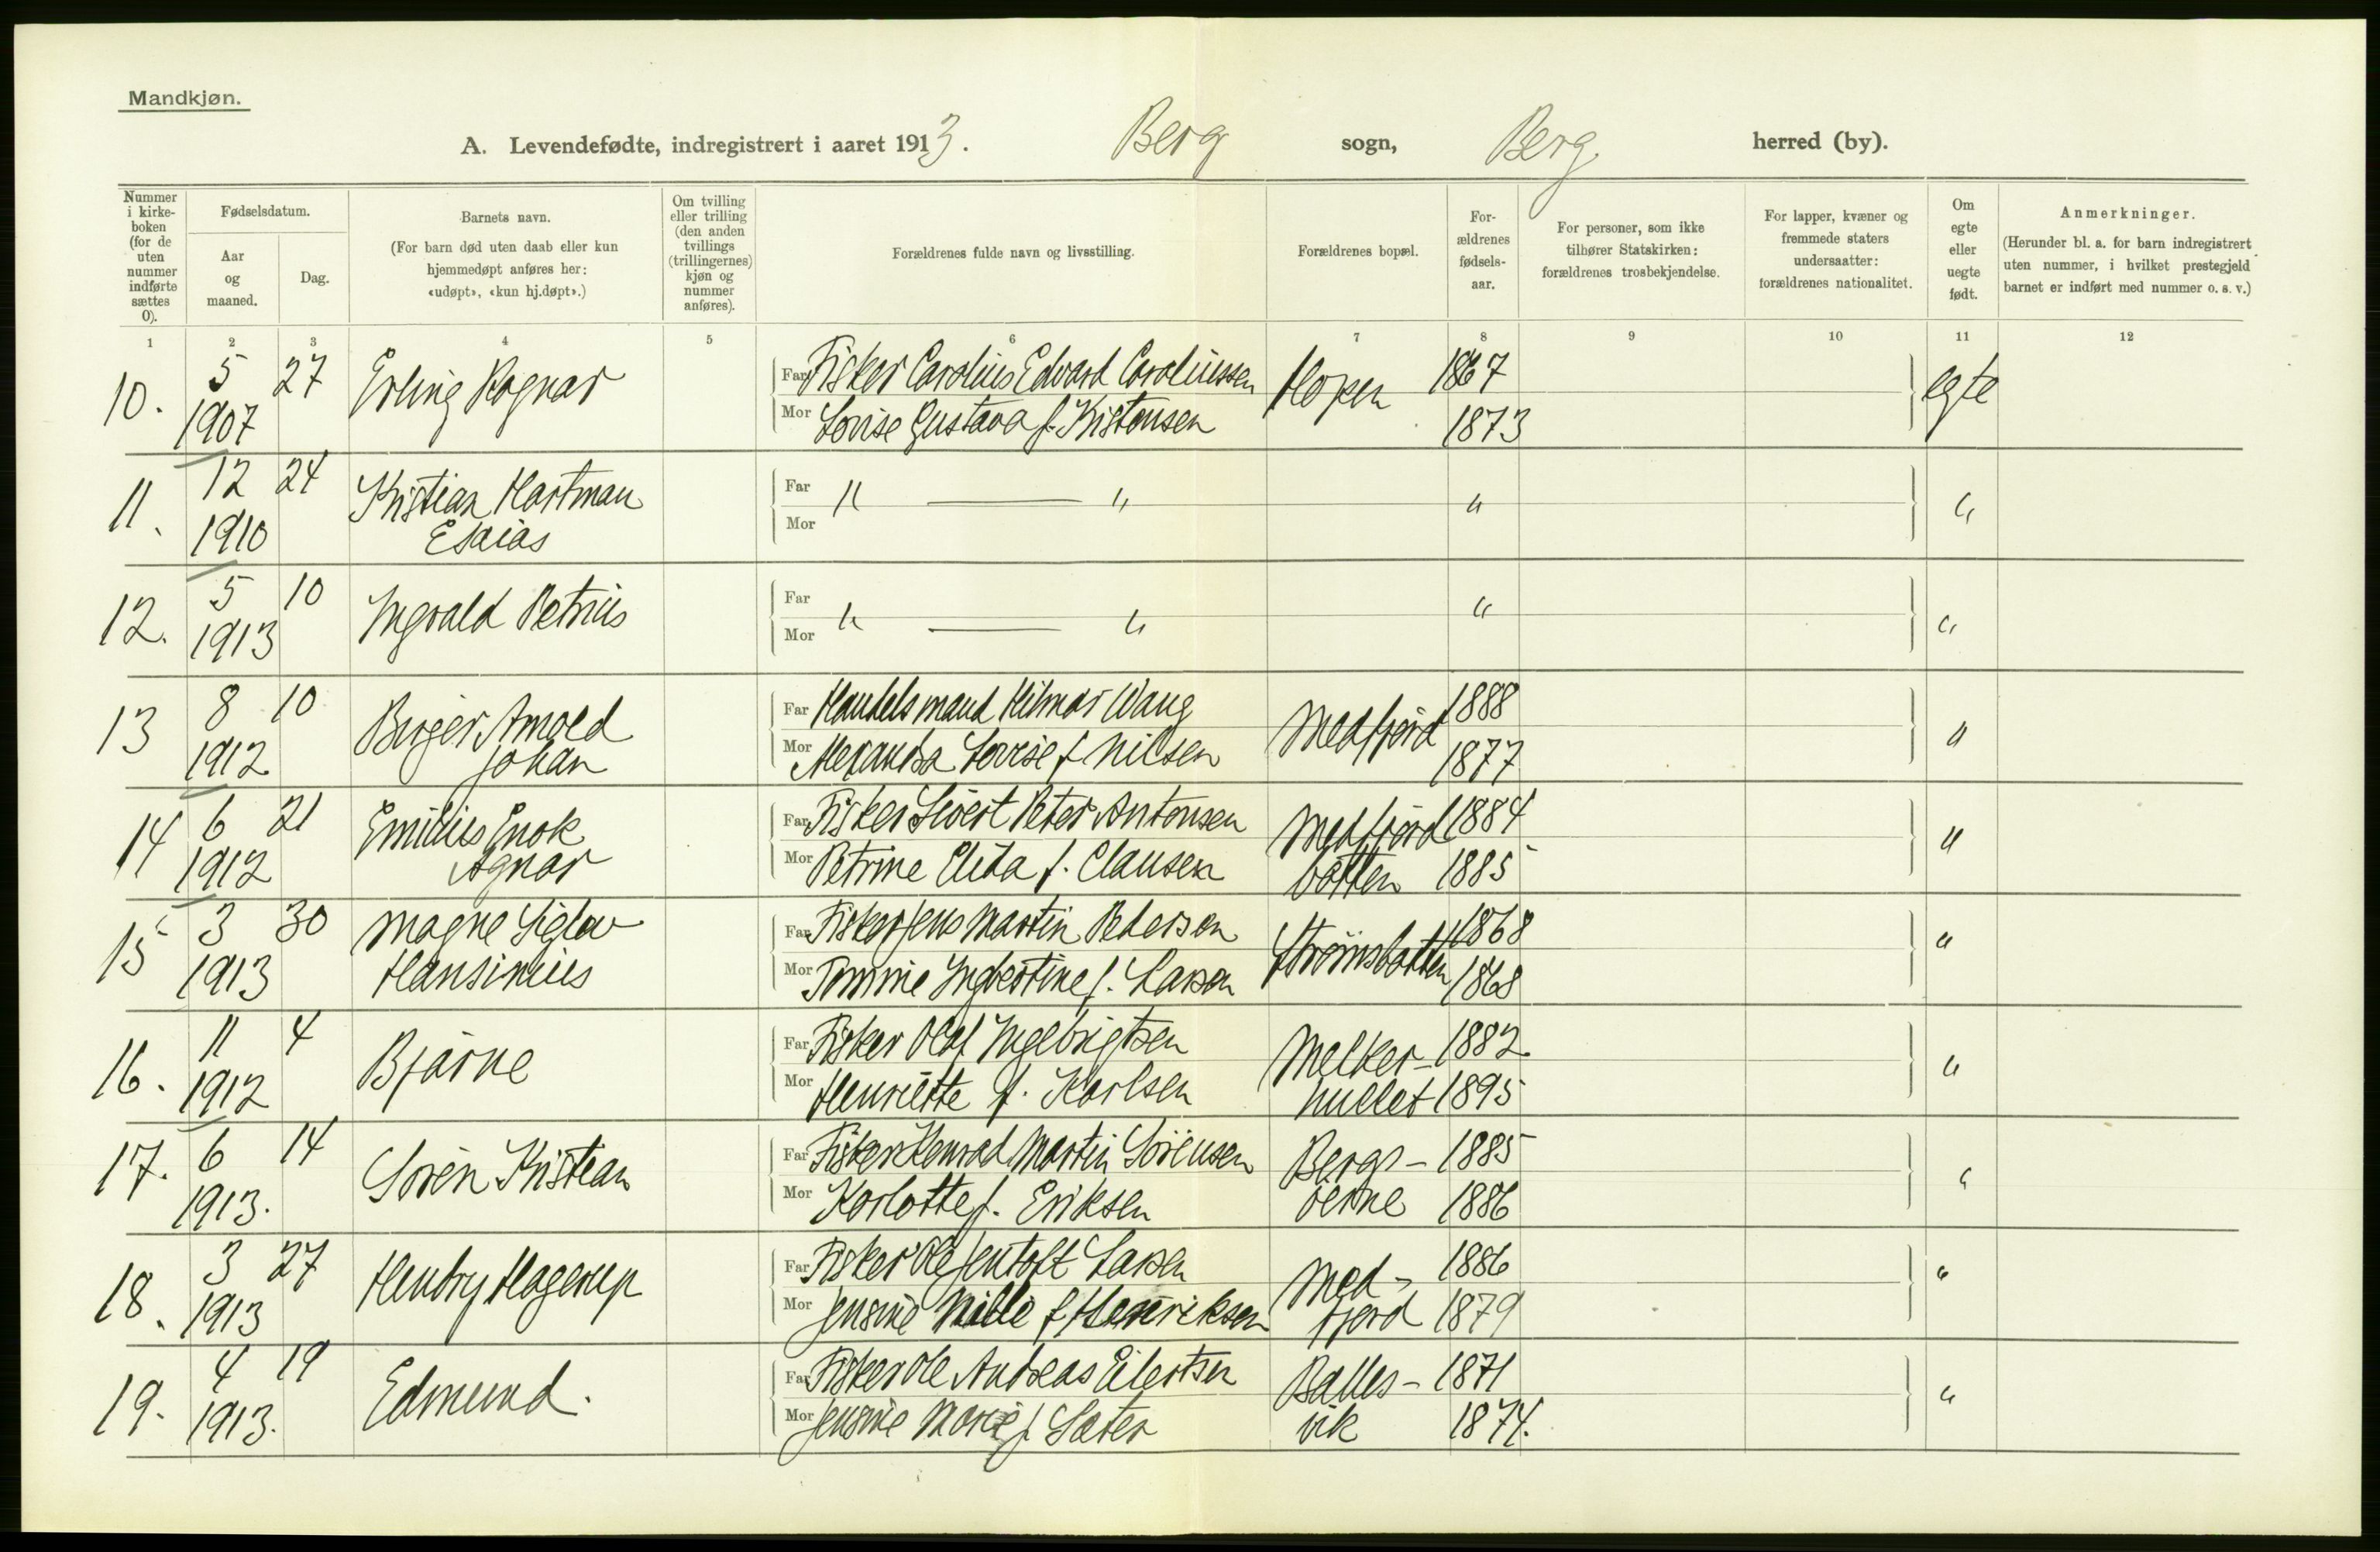 Mandkjøn.
A. Levendefødte, indregistrert i aaret 1913. Berg sogn, Berg. herred (by).
Nummer i kirke-boken (for de uten nummer indførte sættes 0).
Fødselsdatum.
Aar og maaned.
Dag.
Barnets navn.
(For barn død uten daab eller kun hjemmedøpt anføres her: «udøpt», «kun hj.døpt».)
Om tvilling eller trilling (den anden tvillings (trillingernes) kjøn og nummer anføres).
Forældrenes fulde navn og livsstilling.
Forældrenes bopæl.
For-ældrenes fødsels-aar.
For personer, som ikke tilhører Statskirken: forældrenes trosbekjendelse.
For lapper, kvæner og fremmede staters undersaatter: forældrenes nationalitet.
Om egte eller uegte født.
Anmerkninger.
(Herunder bl. a. for barn indregistrert uten nummer, i hvilket prestegjeld barnet er indført med nummer o. s. v.)
1 2 3 4 5 6 7 8 9 10 11 12
10. 5 27 Erling Ragnar Far Fisker Carolius Edvard Caroliussen Hopen 1867 egte
1907 Mor Lovise Gustava f. Kristensen 1873
11. 12 24 Kristian Hartman Far " — " " "
1910 Esaias Mor
12. 5 10 Ingvald Petrius Far " — " " "
1913 Mor
13 8 10 Birger Arnold Far Handelsmand Hilmar Wang Medfjord 1888 "
1912 Johan Mor Alexandra Lovise f Nilsen 1877
14 6 21 Emilius Enok Far Fisker Sivert Peter Antonsen Medfjord 1884 "
1912 Agnar Mor Petrine Elida f. Clausen botten 1885
15 3 30 Magne Siglov Far Fisker Jens Martin Pedersen Strömsbotten 1868 "
1913 Hansinius Mor Tomine Ingbertine f. Larsen 1868
16. 11 4 Bjarne Far Fisker Olaf Ingebrigtsen Melker- 1882 "
1912 Mor Henriette f. Karlsen hullet 1895
17. 6 14 Sören Kristian Far Fisker Konrad Martin Sörensen Bergs- 1885 "
1913. Mor Karlotte f. Eriksen öerne 1886
18. 3 27 Hendry Hagerup Far Fisker Ole Jentoft Larsen Med- 1886 "
1913 Mor Jensine Mille f Henriksen fjord 1879
19. 4 19 Edmund. Far Fisker Ole Andreas Eilertsen Balles- 1871 "
1913. Mor Jensine Marie f Sæter vik 1874.